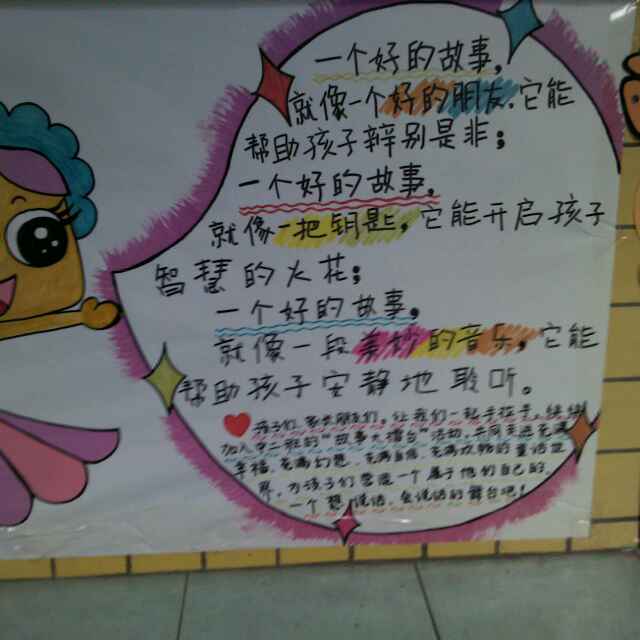 一个好的故事,
就像一个好的朋友,它能
帮助孩子辨别是非;
一个好的故事,
就像一把钥匙,它能开启孩子
智慧的火花;
一个好的故事,
就像一段美妙的音乐,它能
帮助孩子安静地聆听。
孩子们,家长朋友们,让我们一起手拉手,
加入 "故事大擂台"活动,
幸福、充满幻想、充满自信、充满欢畅的童话世
界,为孩子们营造一个属于他们自己的,
一个想说话,会说话的舞台吧!